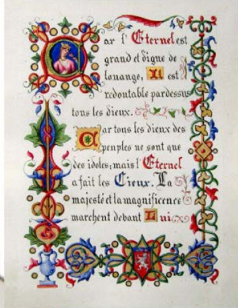 Car l'Eternel est
grand et digne de
louange, Il est
redoutable pardessus
tous les dieux.
Car tous les dieux des
peuples ne sont que
des idoles; mais l'Eternel
a fait les Cieux. La
majesté et la magnificence
marchent devant Lui